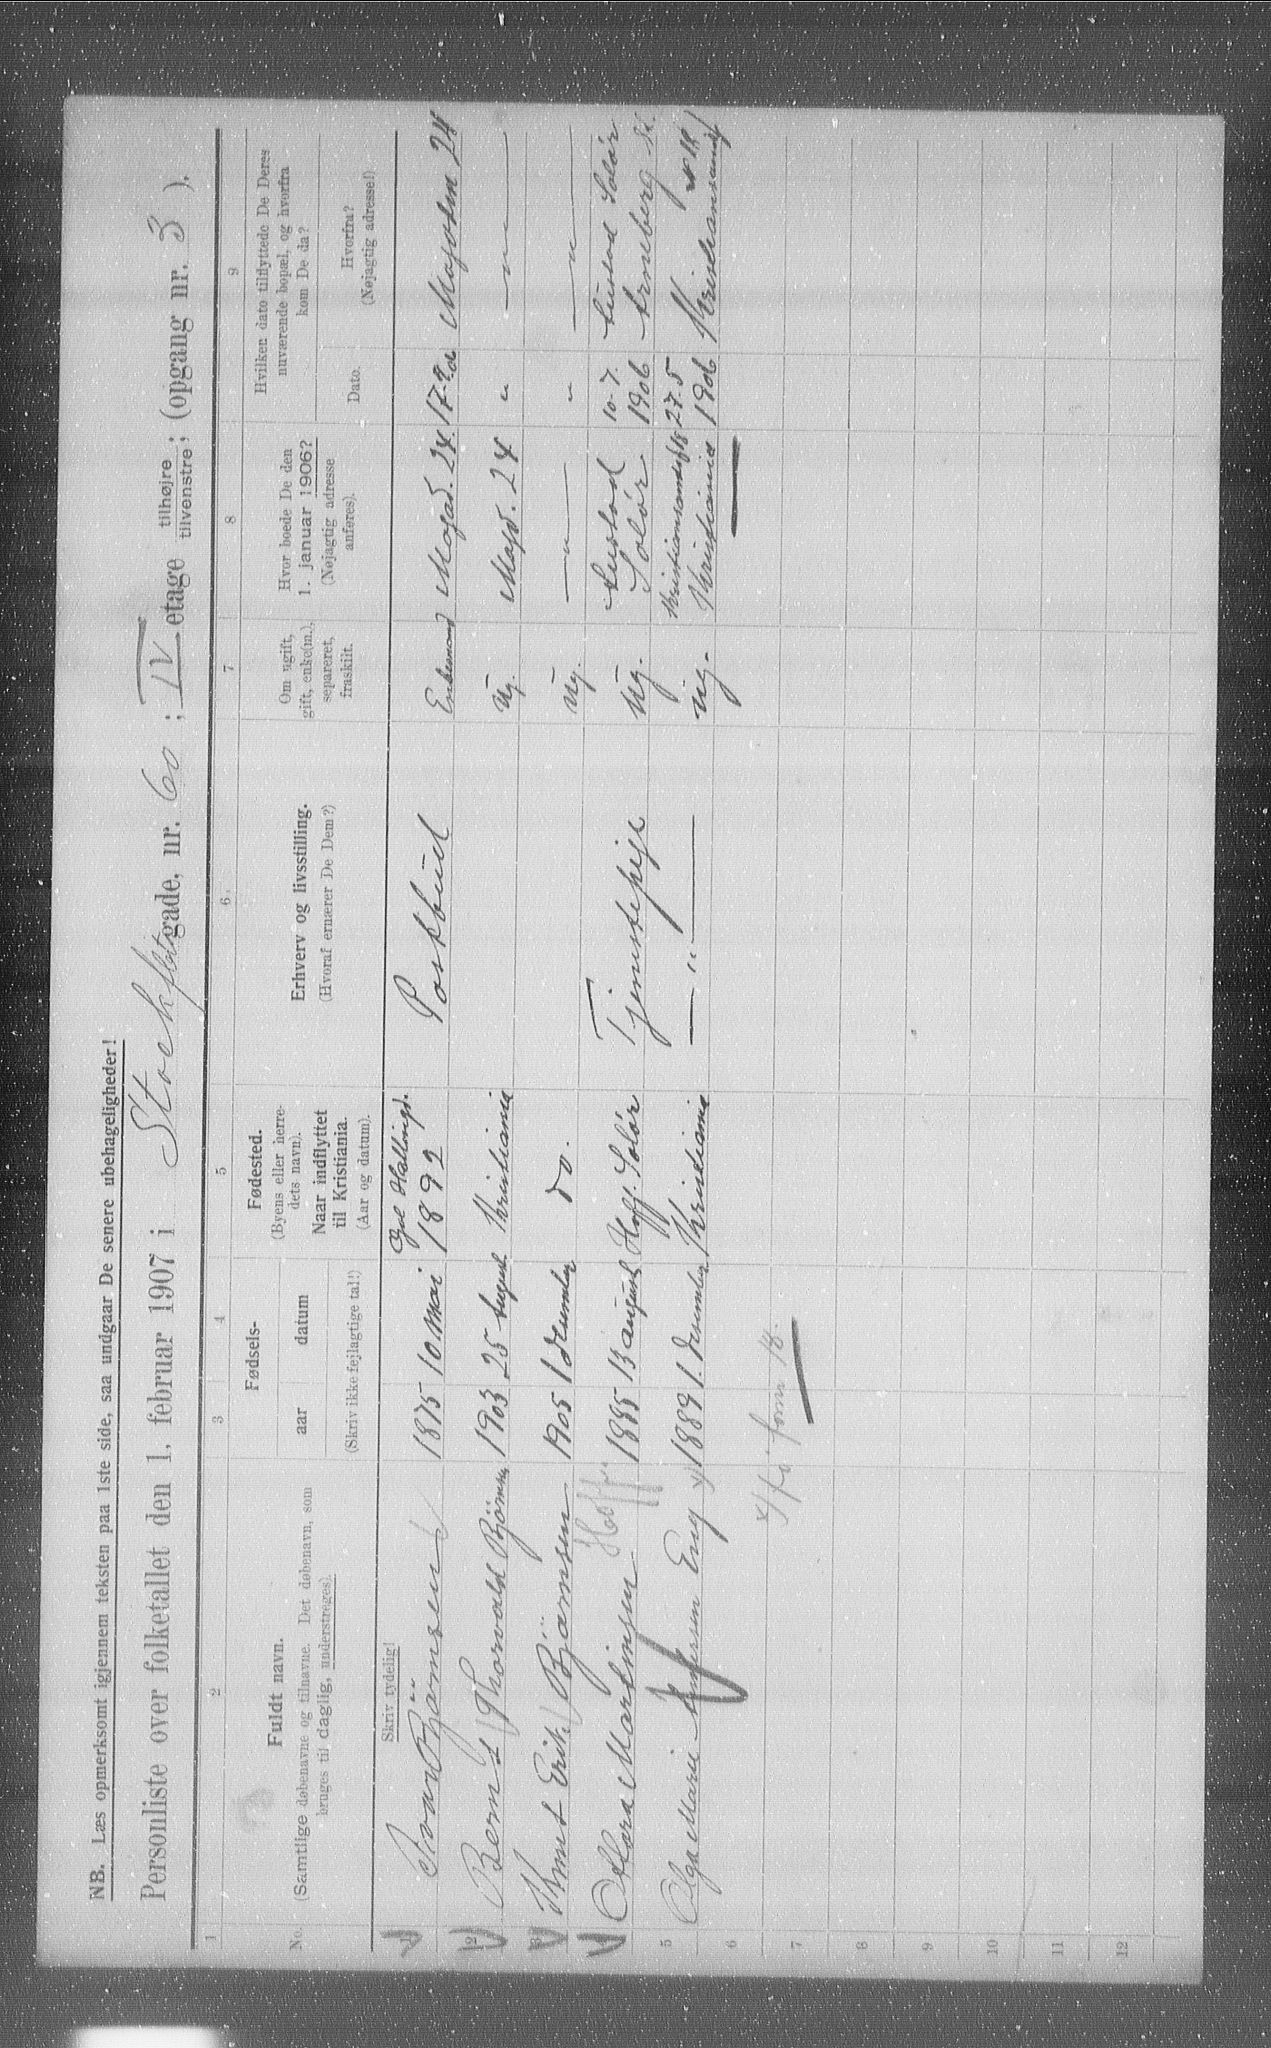 NB. Læs opmerksomt igjennem teksten paa 1ste side, saa undgaar De senere ubehageligheder!
Personliste over folketallet den 1. februar 1907 i Stockflets gade, nr. 60; IV etage tilhøjre tilvenstre; (opgang nr. 3).
1 2 3 4 5 6 7 8 9
No.
Fuldt navn.
(Samtlige døbenavne og tilnavne. Det døbenavn, som
bruges til daglig, understreges).
Fødsels-
aar datum
(Skriv ikke fejlagtige tal!)
Fødested.
(Byens eller herre-
dets navn).
Naar indflyttet
til Kristiania.
(Aar og datum).
Erhverv og livsstilling.
(Hvoraf ernærer De Dem?)
Om ugift,
gift, enke(m.),
separeret,
fraskilt.
Hvor boede De den
1. januar 1906?
(Nøjagtig adresse
anføres).
Hvilken dato tilflyttede De Deres
nuværende bopæl, og hvorfra
kom De da?
Dato.
Hvorfra?
(Nøjagtig adresse!)
Skriv tydelig!
1 Ivar Bjørnsen 1875 10 Mai Gol Hallingd. 1892 Postbud Enkemand 24. 17-2 24
2 Bernt Thorvald Bjørnsen 1903 25 August Kristiania Ug. 24 " — " —
3 Knut Erik Bjørnsen 1905 1 December do. Ug. — " — " — " —
4 Martinsen Hoff 1885 13 august Hoff. Solør Tjenestepige Ug. Solør 10-7. 1906 Solør Arneberg
5 Olga Marie Andersen Eng x) 1889 1. December Kristiania — " — ug. Kristiania 27.5 1906 Kristiansand
6
x)
7
8
9
10
11
12